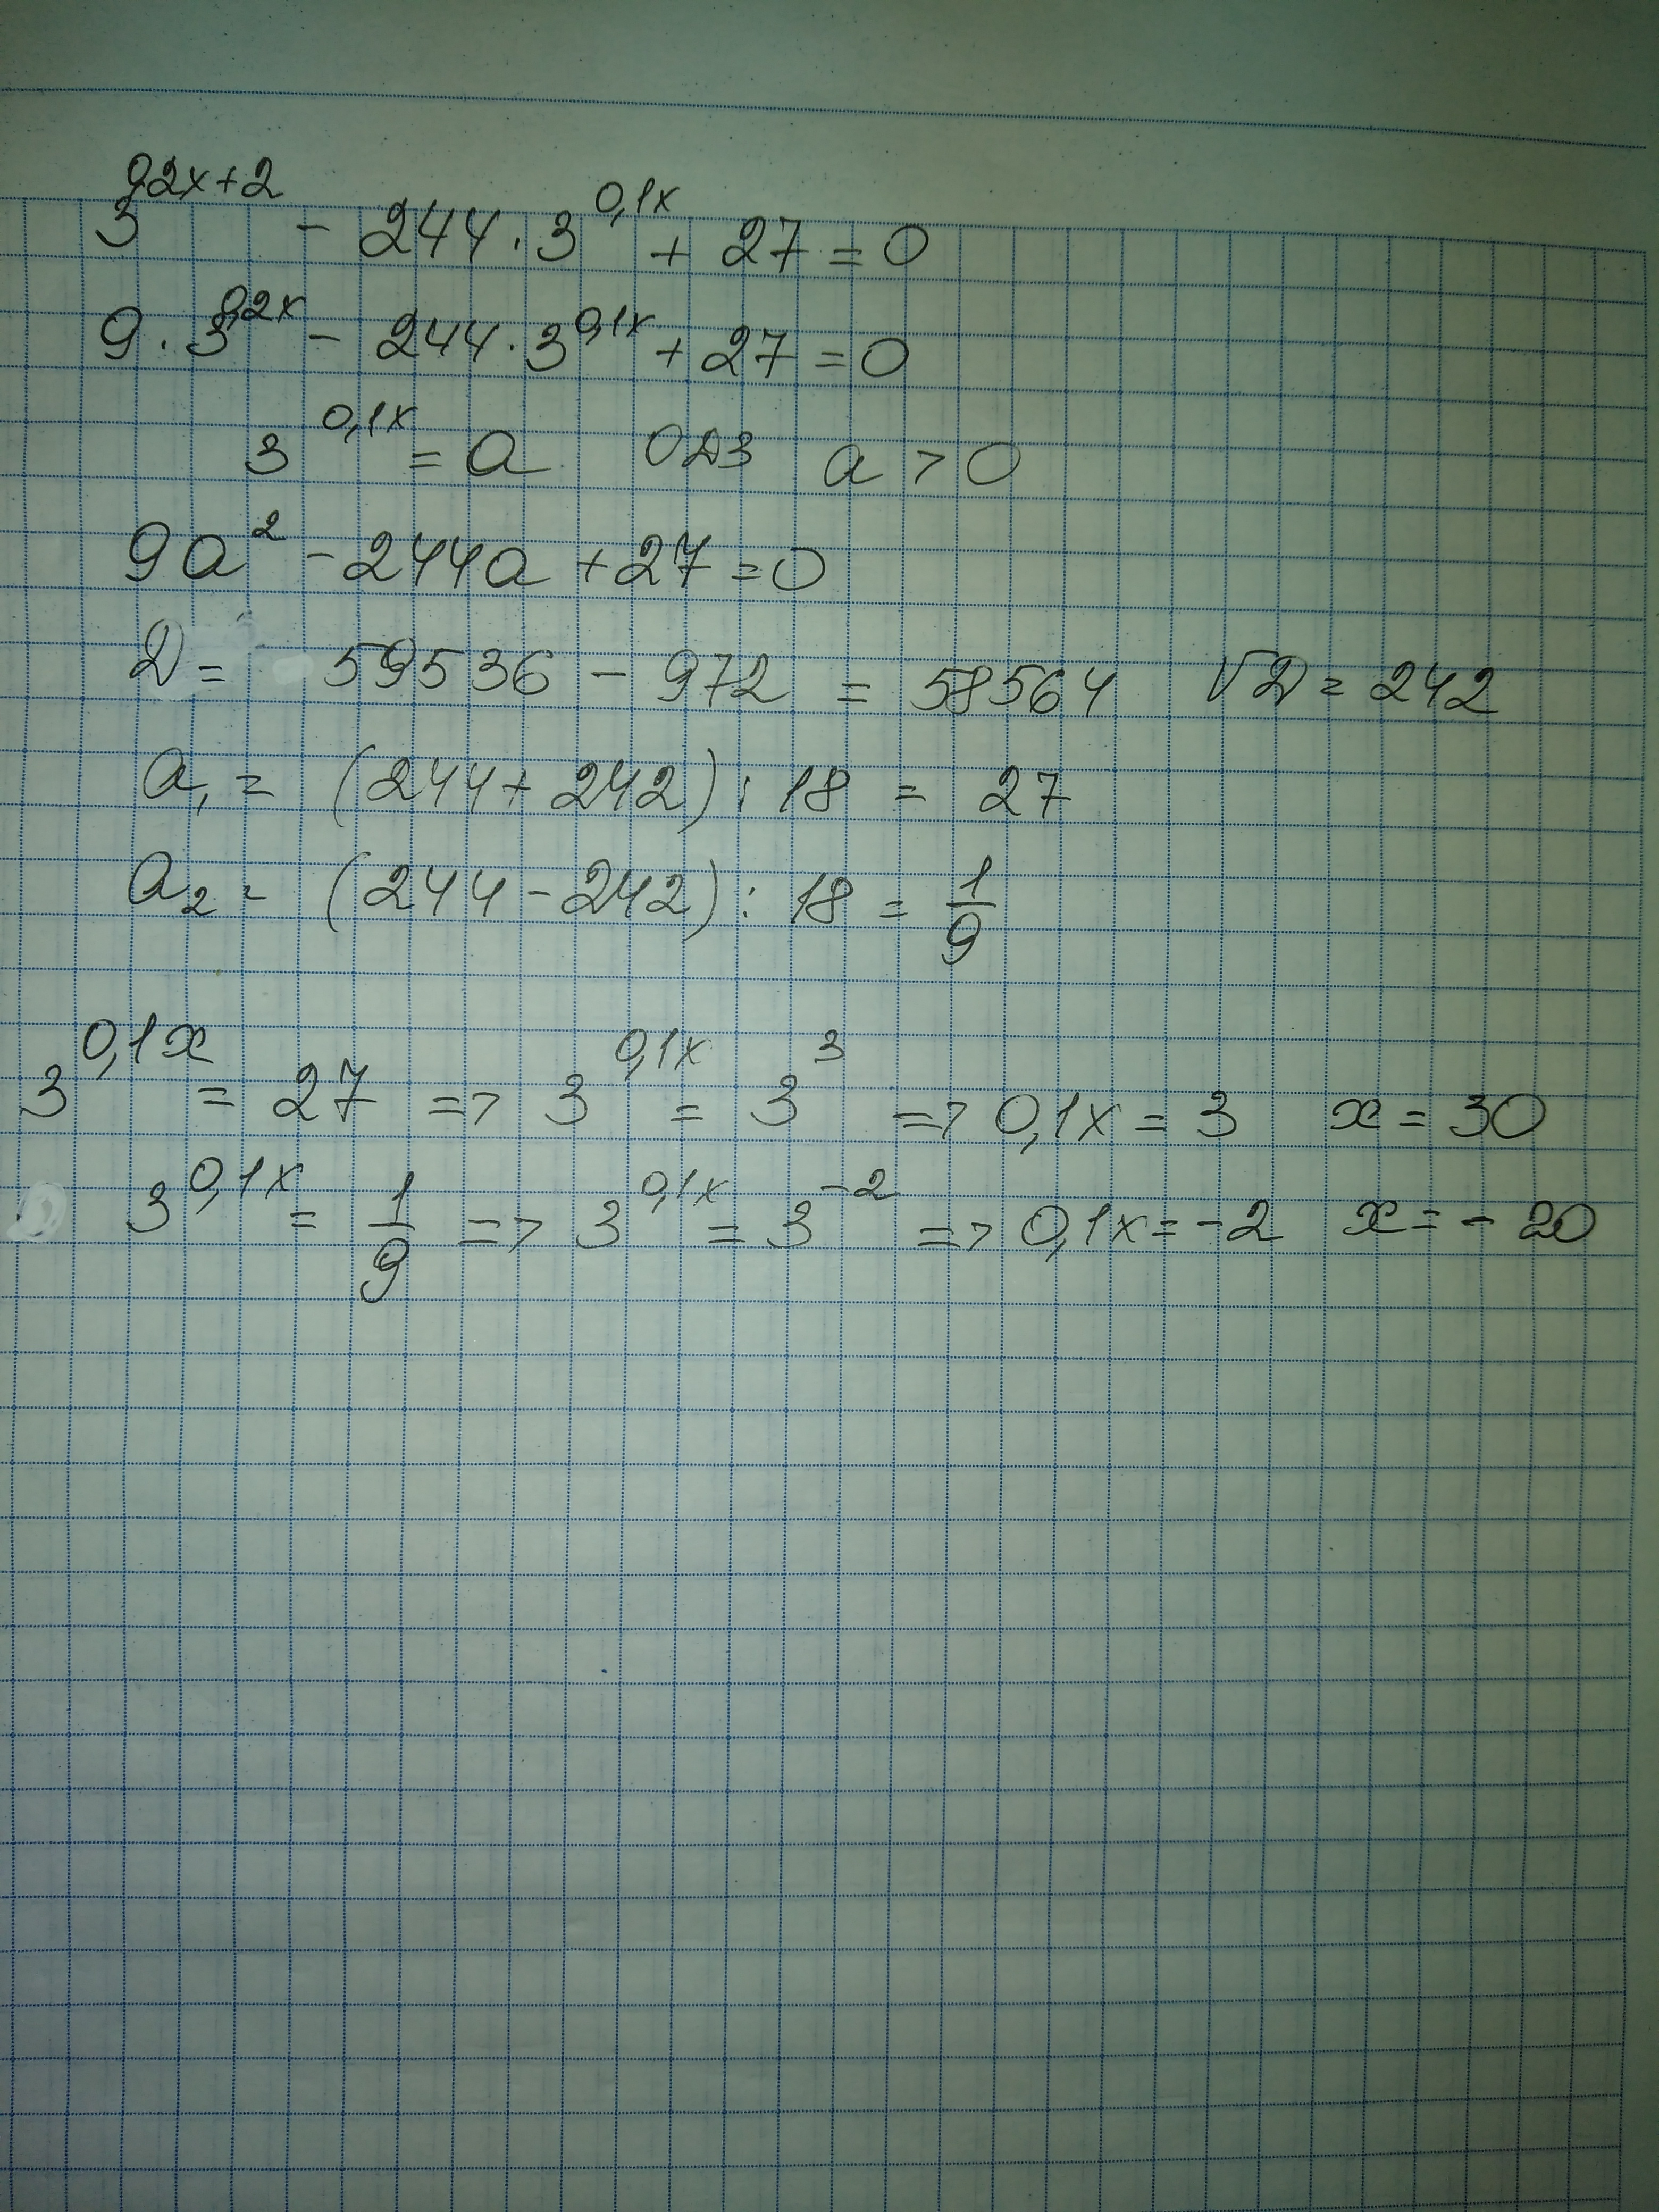 3^{0,2x+2} - 244 · 3^{0,1x} + 27 = 0
9 · 3^{0,2x} - 244 · 3^{0,1x} + 27 = 0
3^{0,1x} = a ОДЗ a > 0
9a² - 244a + 27 = 0
D = 59536 - 972 = 58564 √D = 242
a₁ = (244 + 242) : 18 = 27
a₂ = (244 - 242) : 18 = 1/9
3^{0,1x} = 27 => 3^{0,1x} = 3³ => 0,1x = 3 x = 30
3^{0,1x} = 1/9 => 3^{0,1x} = 3^{-2} => 0,1x = -2 x = - 20